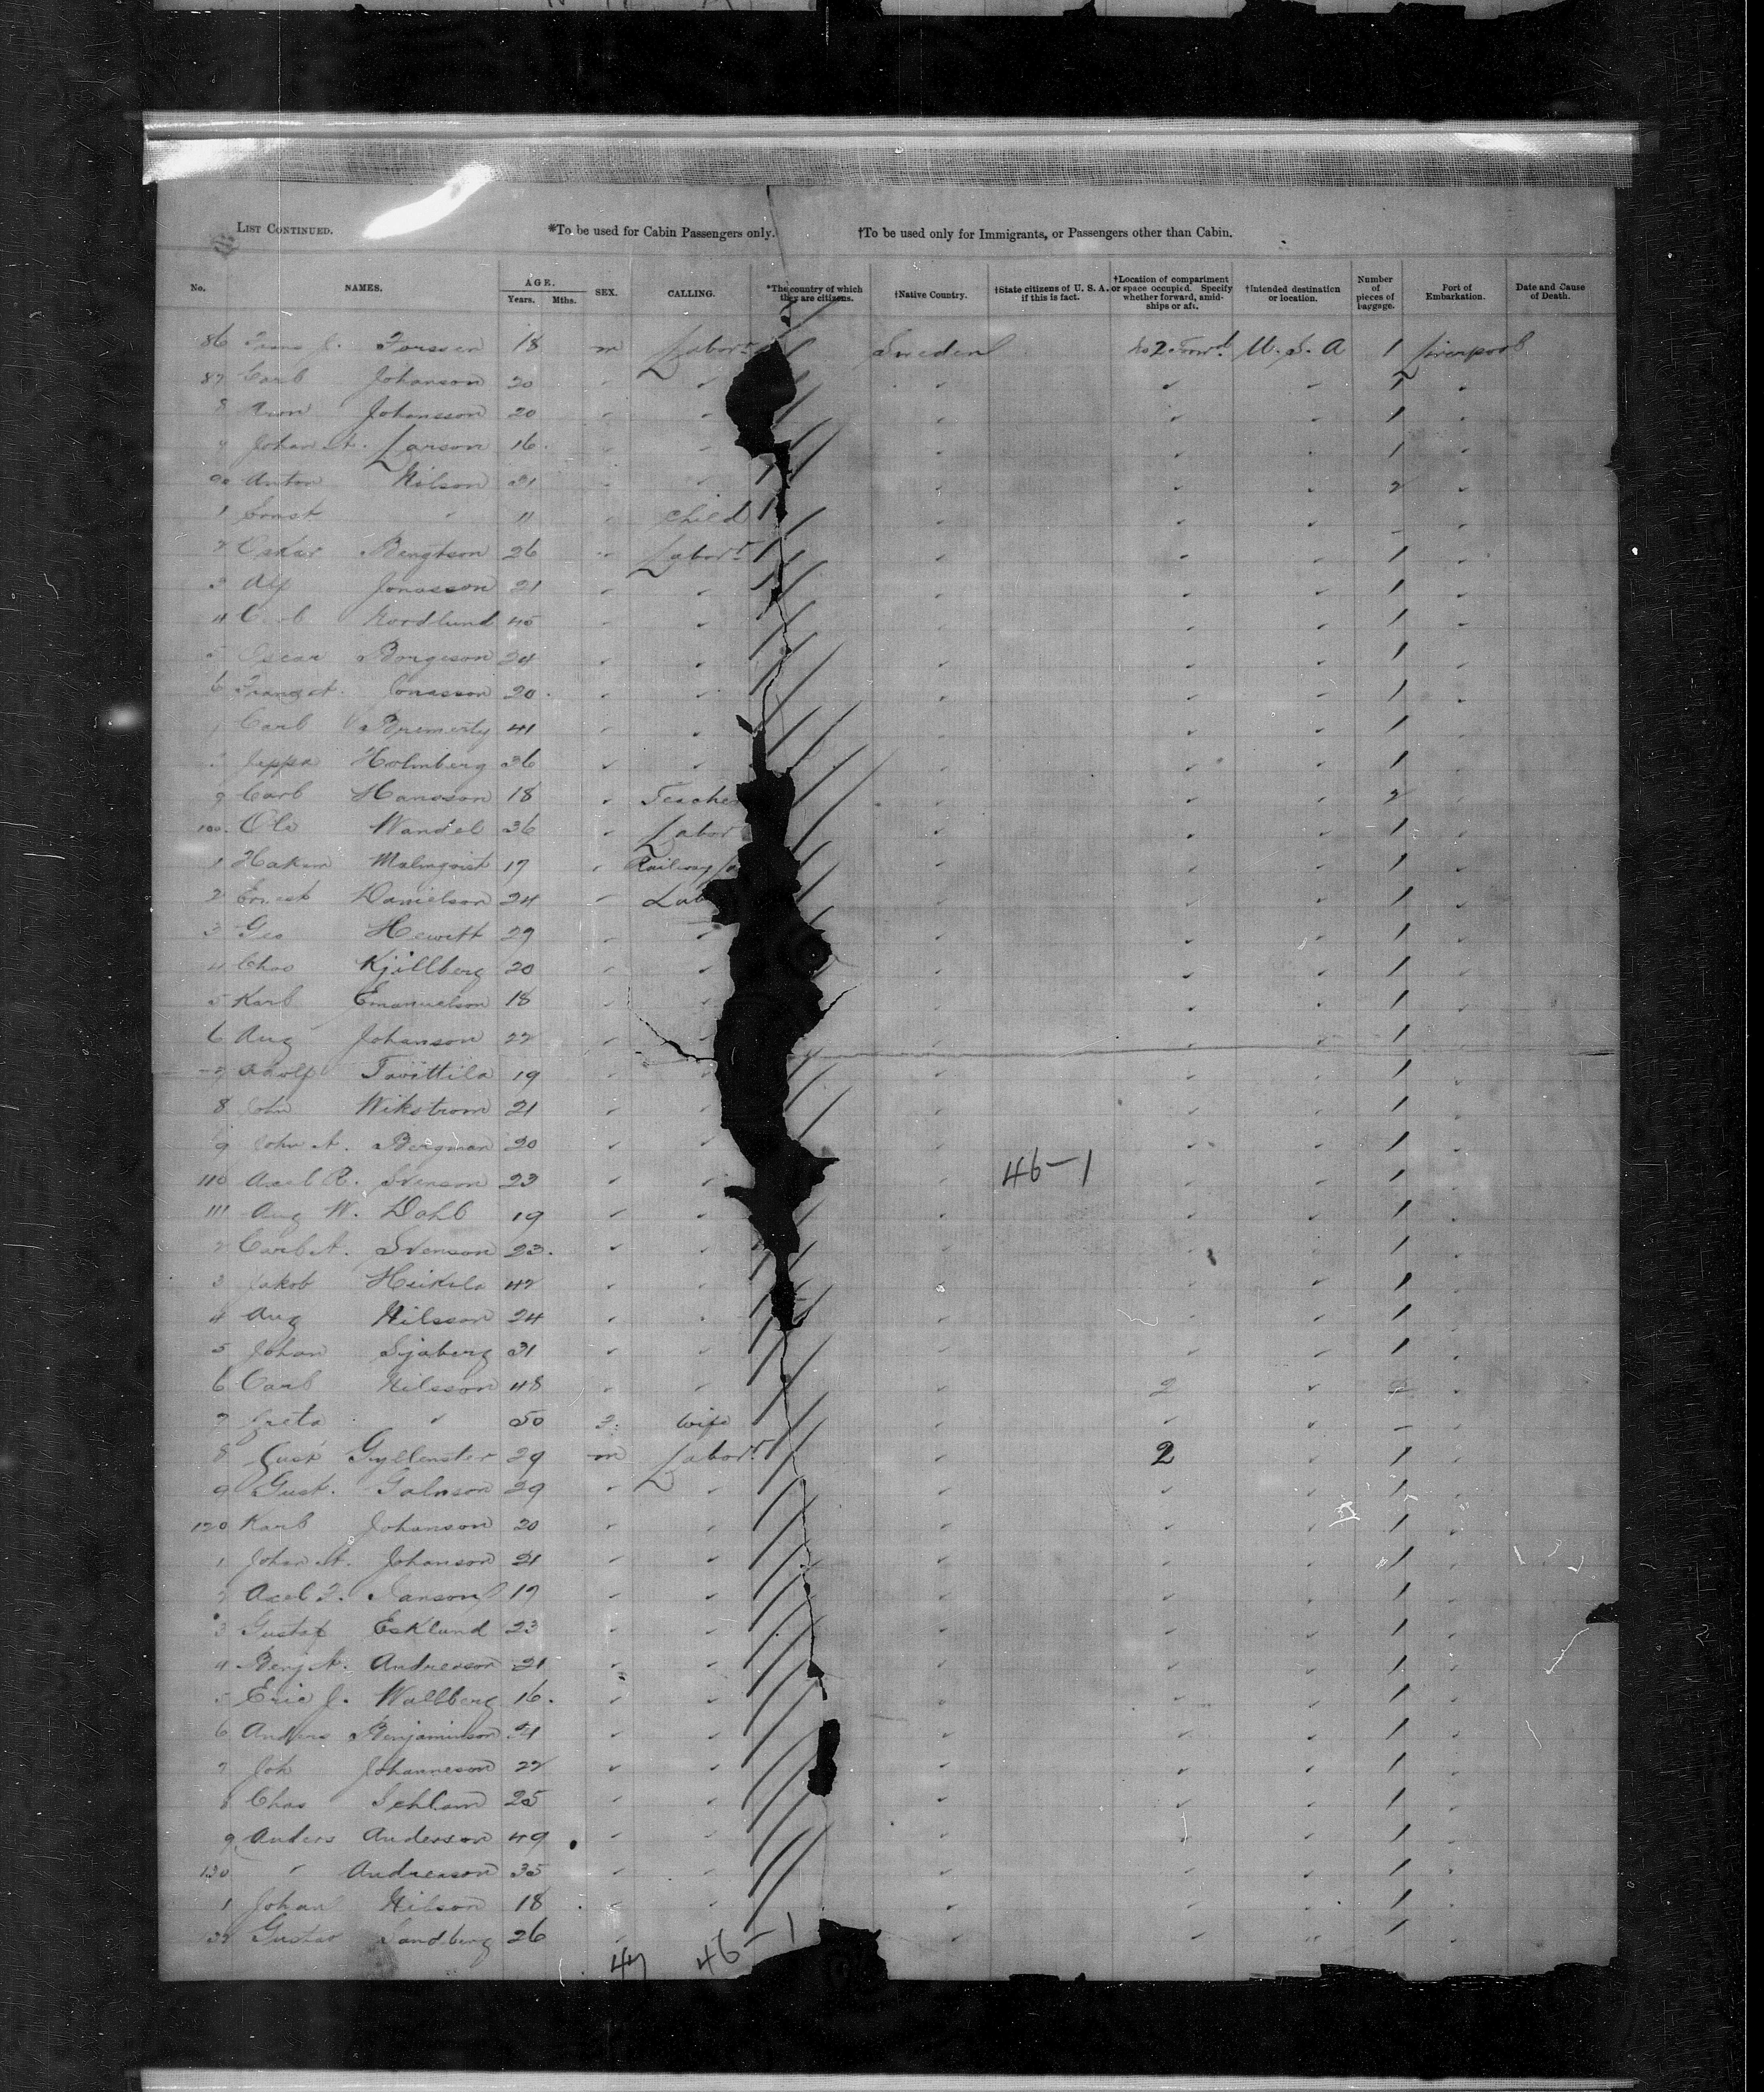 LIST CONTINUED. *To be used for Cabin Passengers only. †To be used only for Immigrants, or Passengers other than Cabin.
No. NAMES. AGE. Years. Mths. SEX. CALLING. *The country of which they are citizens. †Native Country. †State citizens of U. S. A. if this is fact. †Location of compartment or space occupied. Specify whether forward, amidships or aft. †Intended destination or location. Number of pieces of baggage. Port of Embarkation. Date and Cause of Death.
86 J. Forssen 18 m Labor Sweden No 2 Forwd U. S. A 1 Liverpool
87 Carl Johanson 20 1
8 Aron Johansson 20 1
9 Johan A. Larson 16 1
90 Anton Nilson 31 2
1 Ernst " 11 Child
2 Oskar Bengtson 26 Labor 1
3 Alf Jonasson 21 1
4 Nordlund 45 1
5 Oscar Borgeson 24 1
6 Frans A. Jonasson 20 1
Carl 41 1
Jeppa Holmberg 36 1
9 Carl Hansson 18 Teacher 2
100 Ole Wandel 36 Labor 1
1 Hakan Malmqvist 17 Railway 1
2 Ernest Danielson 24 Lab 1
3 Geo Hewitt 29 1
4 Chas Kjillberg 20 1
5 Karl Emanuelson 18 1
6 Aug Johanson 22 1
7 Adolf 19 1
8 John Wikstrom 21 1
9 John A. Bergman 20 1
110 Axel R. Svenson 23 46-1 1
111 Aug W. Dahl 19 1
2 Carl A. Svenson 23 1
3 Jakob Heikila 42 1
4 Aug Nilsson 24 1
5 Johan Sjaberg 31 1
6 Carl Nilsson 48 2 2
7 Greta " 50 F. Wife –
8 Gust Gyllenster 29 m Labor 2 1
9 Gust. 29 1
120 Karl Johanson 20 1
1 Johan A. Johanson 21 1
2 Axel F. 19 1
3 Gustaf Esklund 23 1
4 Benj A. Andreason 21 1
5 Eric J. Wallberg 16 1
6 Anders Benjaminson 1
7 Joh Johanneson 22 1
8 Chas 25 1
9 Anders Anderson 49 1
130 " Andreason 35 1
1 Johan Nilson 18 1
32 Gustav Sandberg 26 1
47 46-1